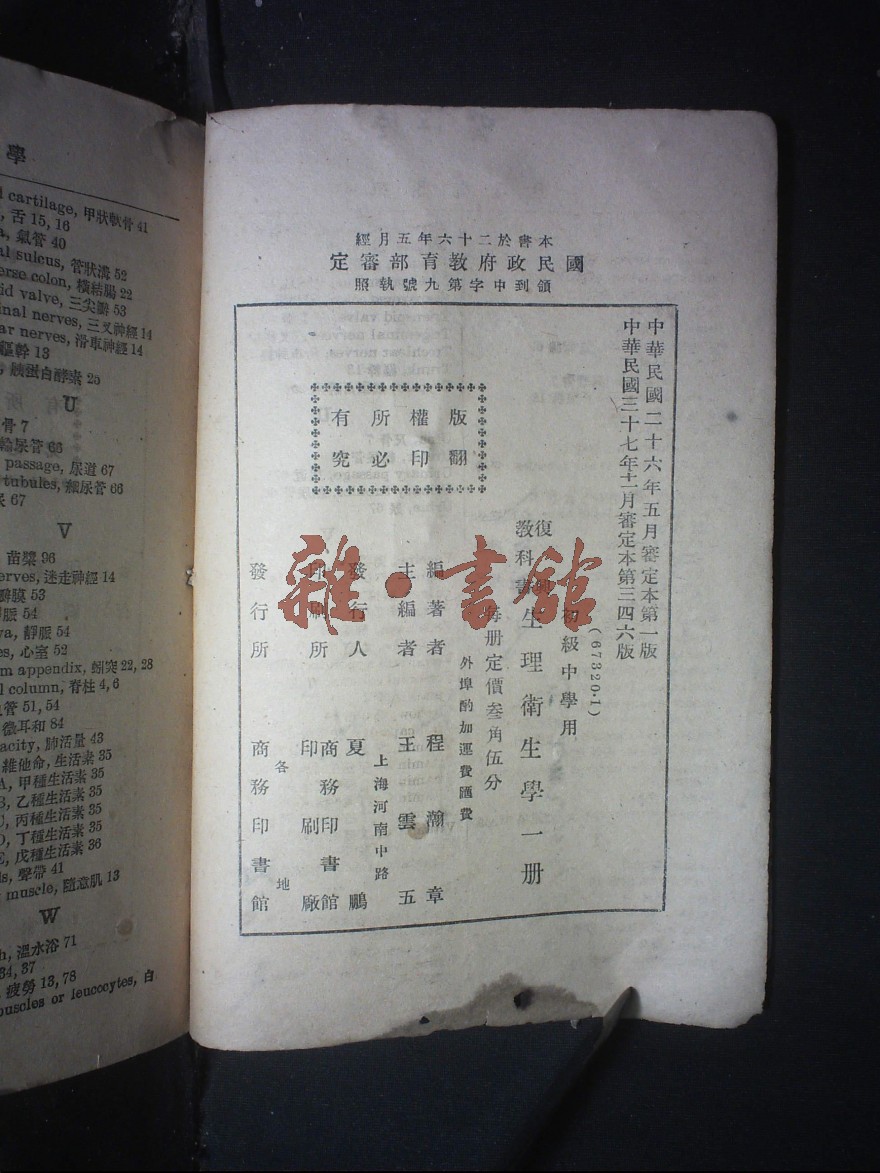 學
cartilage, 甲狀軟骨 41
舌 15, 16
氣管 40
sulcus, 管狀溝 52
verse colon, 橫結腸 22
valve, 三尖瓣 53
nerves, 三叉神經 14
nerves, 滑車神經 14
軀幹 13
胰蛋白酵素 25
U
骨 7
輸尿管 66
passage, 尿道 67
tubules, 細尿管 66
67
V
苗漿 96
nerves, 迷走神經 14
瓣膜 53
54
靜脈 54
心室 52
appendix, 蚓突 22, 28
column, 脊柱 4, 6
管 51, 54
徵耳和 84
肺活量 43
維他命, 生活素 35
A, 甲種生活素 35
B, 乙種生活素 35
丙種生活素 35
D, 丁種生活素 35
E, 戊種生活素 36
聲帶 41
muscle, 隨意肌 13
W
溫水浴 71
34, 37
疲勞 13, 78
or leucocytes, 白
本書於二十六年五月經
國民政府教育部審定
領到中字第九號執照
中華民國二十六年五月審定本第一版
中華民國三十七年十一月審定本第三四六版
版權所有
翻印必究
(67320·1)
初級中學用
復興
教科書
生理衛生學一册
每册定價叁角伍分
外埠酌加運費匯費
編著者 程瀚章
主編者 王雲五
上海河南中路
發行人 夏鵬
印刷所 商務印書館
印刷廠
各地
發行所 商務印書館
雜·書館